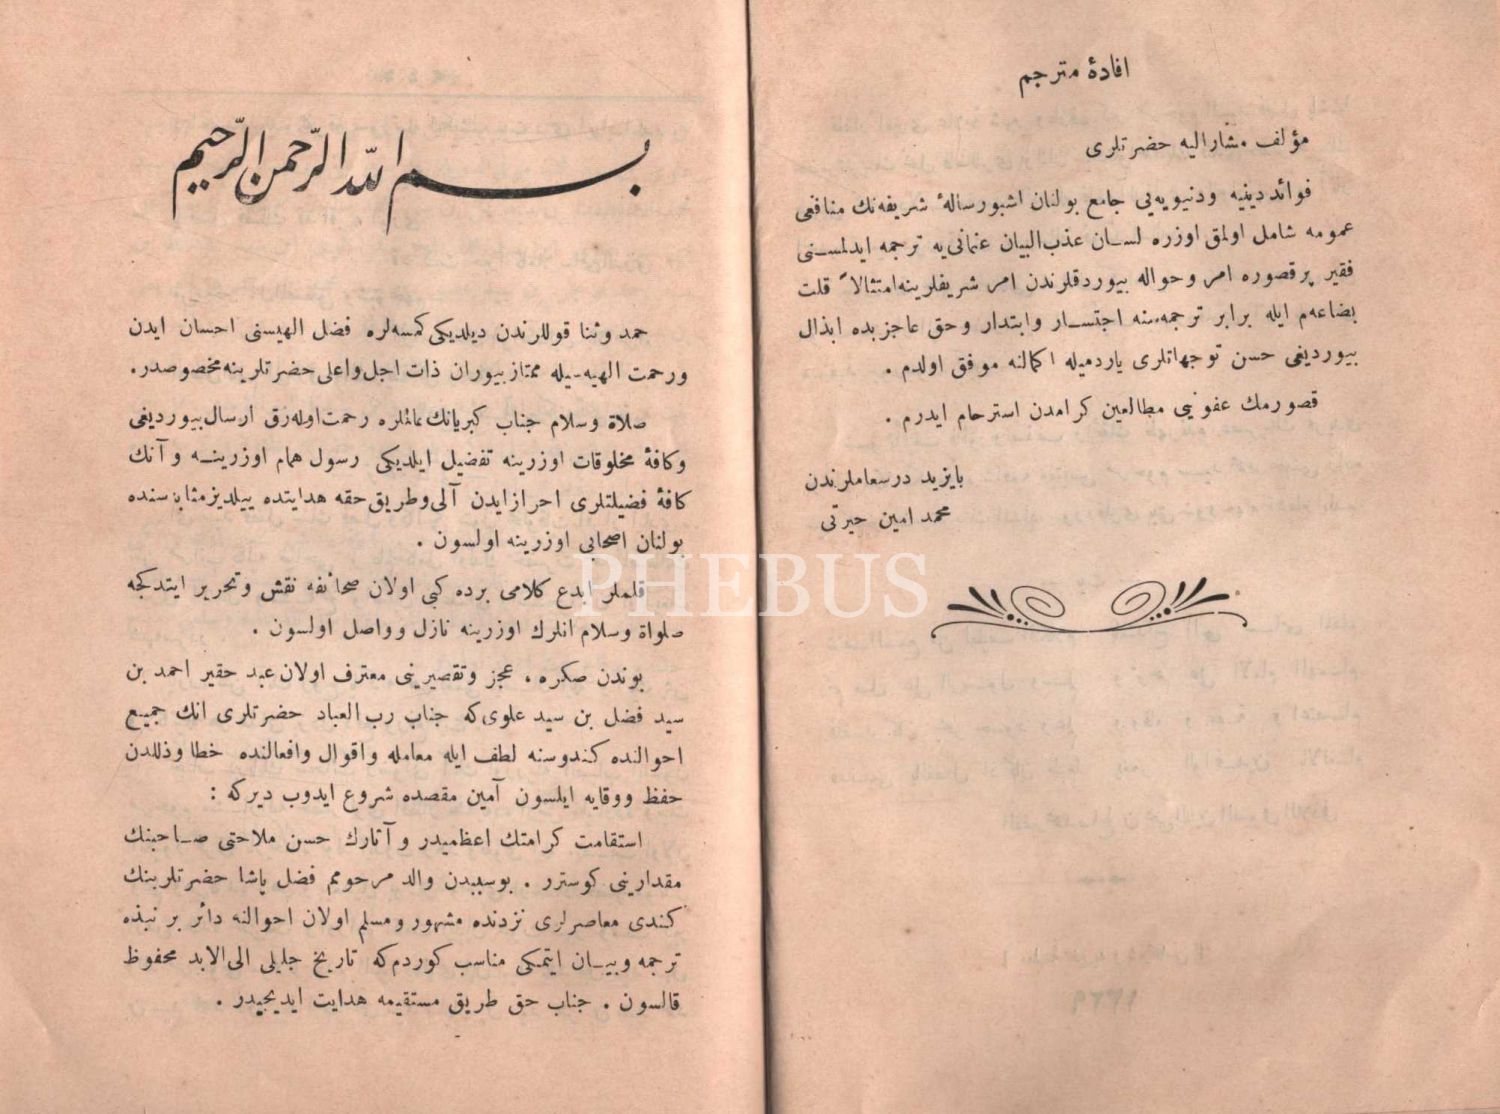 افادۀ مترجم
مؤلف مشار اليه حضرتلری
فوائد دينيه ودنيويه‌يی جامع بولنان اشبو رسالۀ شريفه‌نك منافعی
عمومه شامل اولمق اوزره لسان عذب‌البيان عثمانی‌يه ترجمه ايدلمسنی
فقير پر قصوره امر وحواله بيوردقلرندن امر شريفلرينه امتثالاً قلت
بضاعه‌م ايله برابر ترجمه‌سنه اجتسار وابتدار وحق عاجزيده ابذال
بيورديغی حسن توجهاتلری ياردميله اكمالنه موفق اولدم .
قصورمك عفونی مطالعين كرامدن استرحام ايدرم .
بايزيد درسعاملرندن
محمد امين حيرتی
بسم الله الرّحمن الرّحيم
حمد وثنا قوللرندن ديلديكی كمسه‌لره فضل الهيسنی احسان ايدن
ورحمت الهيه‌سيله ممتاز بيوران ذات اجل واعلی حضرتلرينه مخصوصدر.
صلاة وسلام جناب كبريانك عالملره رحمت اوله‌رق ارسال بيورديغی
وكافۀ مخلوقات اوزرينه تفضيل ايلديكی رسول همام اوزرينه وآنك
كافۀ فضيلتلری احراز ايدن آلی وطريق حقه هدايتده ييلديز مثابه‌سنده
بولنان اصحابی اوزرينه اولسون .
قلملر ابدع كلامی برده كبی اولان صحائفه نقش وتحرير ايتدكجه
صلواة وسلام انلرك اوزرينه نازل وواصل اولسون .
بوندن صكره ، عجز وتقصيرينی معترف اولان عبد حقير احمد بن
سيد فضل بن سيد علوی كه جناب رب العباد حضرتلری انك جميع
احوالنده كندوسنه لطف ايله معامله واقوال وافعالنده خطا وذللدن
حفظ ووقايه ايلسون آمين مقصده شروع ايدوب ديركه :
استقامت كرامتك اعظميدر وآثارك حسن ملاحتی صاحبنك
مقدارينی كوسترر . بوسببدن والد مرحومم فضل پاشا حضرتلرينك
كندی معاصرلری نزدنده مشهور ومسلم اولان احوالنه دائر بر نبذه
ترجمه وبيان ايتمكی مناسب كوردم كه تاريخ جليلی الی الابد محفوظ
قالسون . جناب حق طريق مستقيمه هدايت ايديجيدر .
PHEBUS